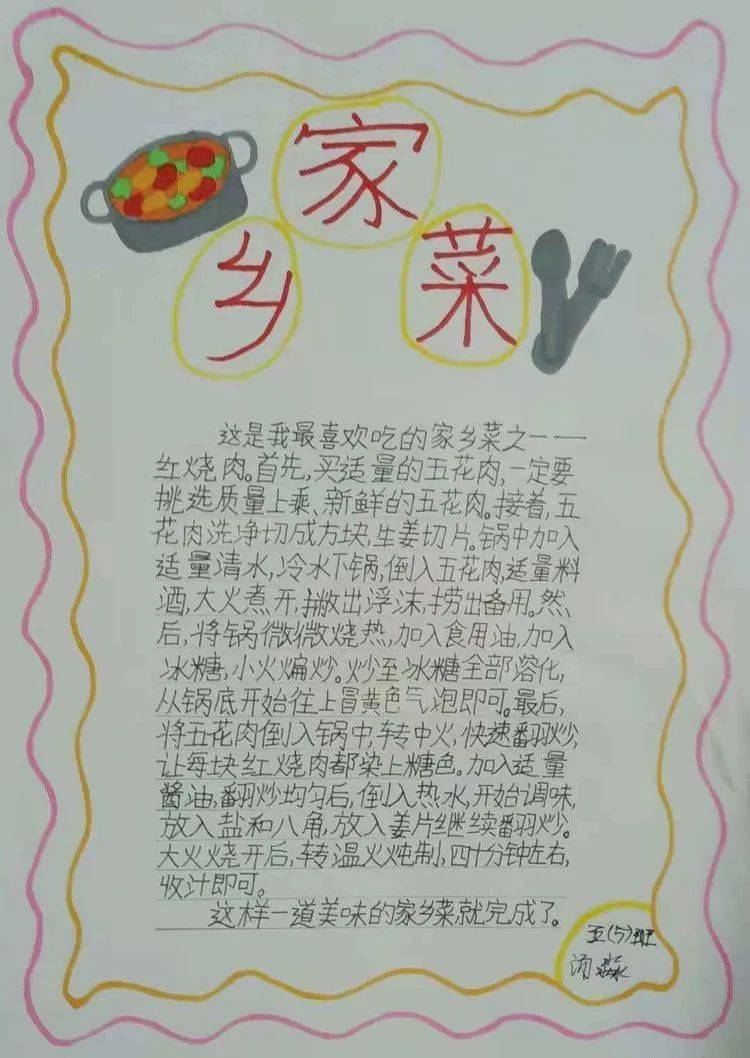 家
乡
菜
这是我最喜欢吃的家乡菜之一——
红烧肉。首先,买适量的五花肉,一定要
挑选质量上乘、新鲜的五花肉。接着,五
花肉洗净切成方块,生姜切片。锅中加入
适量清水,冷水下锅,倒入五花肉,适量料
酒,大火煮开,撇出浮沫,捞出备用。然
后,将锅微微烧热,加入食用油,加入
冰糖,小火煸炒。炒至冰糖全部溶化,
从锅底开始往上冒黄色气泡即可。最后,
将五花肉倒入锅中,转中火,快速翻炒,
让每块红烧肉都染上糖色。加入适量
酱油,翻炒均匀后,倒入热水,开始调味,
放入盐和八角,放入姜片继续翻炒。
大火烧开后,转温火炖制,四十分钟左右,
收汁即可。
这样一道美味的家乡菜就完成了。
五(5)班
汤淼